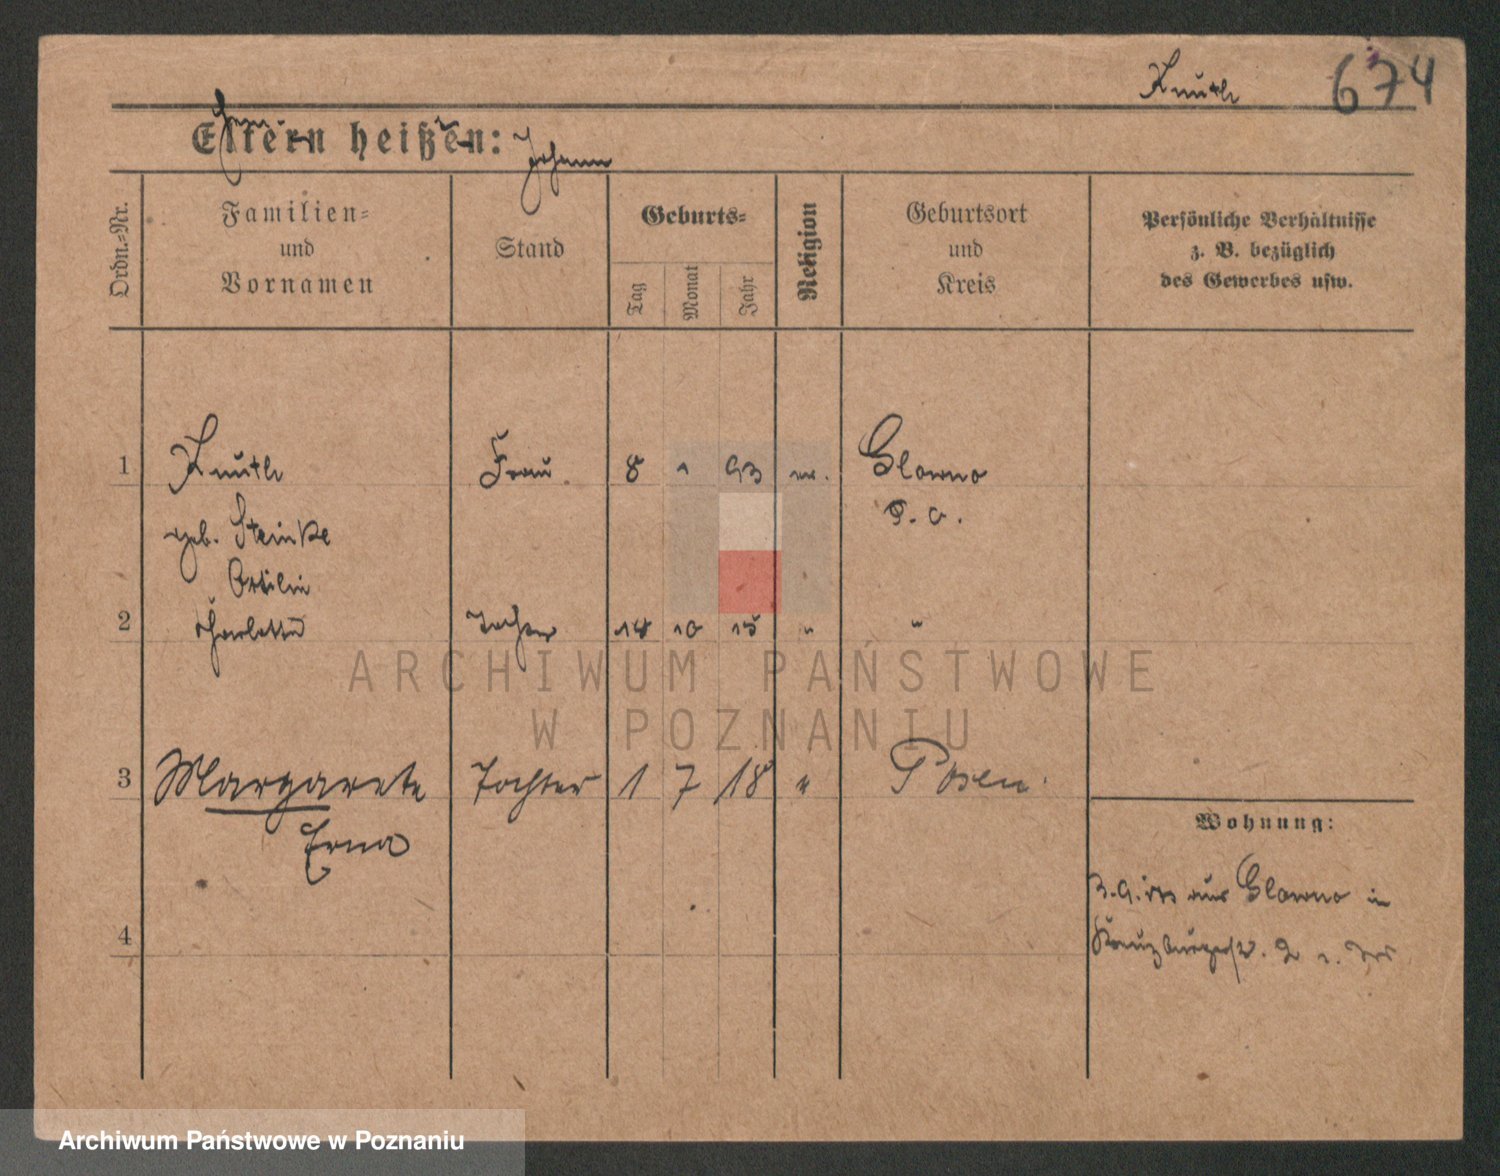 Knuth 674
Eltern heißen: Johann
Ordn.=Nr.
Familien=
und
Vornamen
Stand
Geburts=
Tag
Monat
Jahr
Religion
Geburtsort
und
Kreis
Persönliche Verhältnisse
z. B. bezüglich
des Gewerbes usw.
1 Knuth Frau 8 1 93 ev. Glowno
geb. Steinke P. O.
Ottilie
2 Charlotte Tochter 14 10 15 " "
3 Margarete Tochter 1 7 18 " Posen
Erna
Wohnung:
aus Glowno in
4
ARCHIWUM PAŃSTWOWE
W POZNANIU
Archiwum Państwowe w Poznaniu